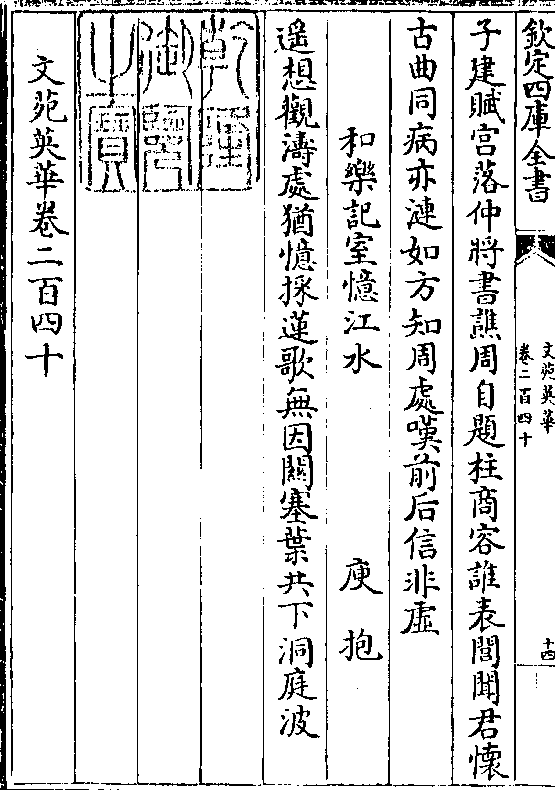 欽定四庫全書
文苑英華
卷二百四十
十四
子建賦宮落仲將書譙周自題柱商容誰表閭聞君懷
古曲同病亦漣如方知周處嘆前后信非虛
和樂記室憶江水
庾抱
遥想觀濤處猶憶採蓮歌無因關塞葉共下洞庭波
乾隆
御覽
之寶
文苑英華卷二百四十